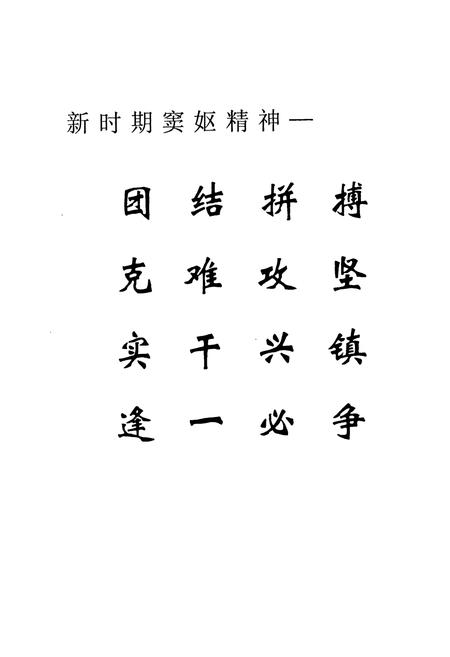 新时期窦妪精神—
团结拼搏
克难攻坚
实干兴镇
逢一必争